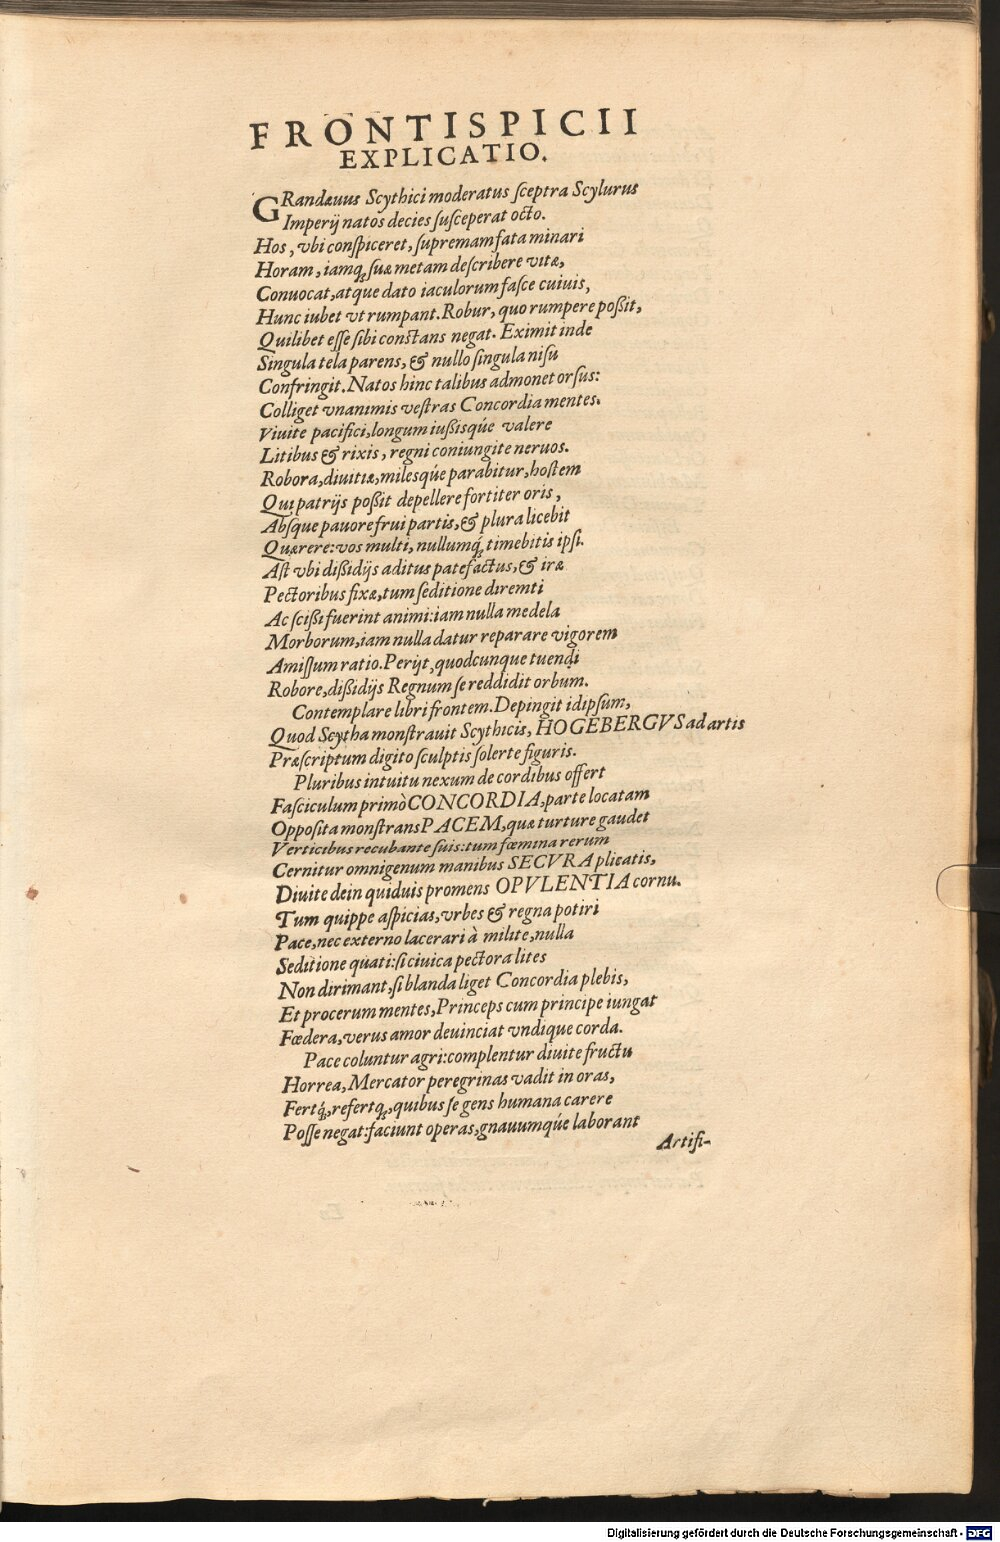 FRONTISPICII
EXPLICATIO.
GRandæuus Scythici moderatus ſceptra Scylurus
Imperij natos decies ſuſceperat octo.
Hos, vbi conſpiceret, ſupremam fata minari
Horam, iamq́ ſuæ metam deſcribere vitæ,
Conuocat, atque dato iaculorum faſce cuiuis,
Hunc iubet vt rumpant. Robur, quo rumpere poßit,
Quilibet eſſe ſibi constans negat. Eximit inde
Singula tela parens, & nullo ſingula niſu
Confringit. Natos hinc talibus admonet orſus:
Colliget vnanimis veſtras Concordia mentes.
Viuite pacifici, longum iußisqúe valere
Litibus & rixis, regni coniungite neruos.
Robora, diuitiæ, milesqúe parabitur, hoſtem
Qui patrijs poßit depellere fortiter oris,
Abſque pauore frui partis, & plura licebit
Quærere: vos multi, nullumq́ timebitis ipſi.
Aſt vbi dißidijs aditus patefactus, & iræ
Pectoribus fixæ, tum ſeditione diremti
Ac ſcißi fuerint animi: iam nulla medela
Morborum, iam nulla datur reparare vigorem
Amiſſum ratio. Perijt, quodcunque tuendi
Robore, dißidijs Regnum ſe reddidit orbum.
Contemplare libri frontem. Depingit idipſum,
Quod Scytha monſtrauit Scythicis, HOGEBERGVS ad artis
Præſcriptum digito ſculptis ſolerte figuris.
Pluribus intuitu nexum de cordibus offert
Faſciculum primò CONCORDIA, parte locatam
Oppoſita monſtrans PACEM, quæ turture gaudet
Verticibus recubante ſuis: tum fœmina rerum
Cernitur omnigenum manibus SECVRA plicatis,
Diuite dein quiduis promens OPVLENTIA cornu.
Tum quippe aſpicias, vrbes & regna potiri
Pace, nec externo lacerari à milite, nulla
Seditione quati: ſi ciuica pectora lites
Non dirimant, ſi blanda liget Concordia plebis,
Et procerum mentes, Princeps cum principe iungat
Fœdera, verus amor deuinciat vndique corda.
Pace coluntur agri: complentur diuite fructu
Horrea, Mercator peregrinas vadit in oras,
Fertq́, refertq́, quibus ſe gens humana carere
Poſſe negat: faciunt operas, gnauumqúe laborant
Artifi-
Digitalisierung gefördert durch die Deutsche Forschungsgemeinschaft - DFG